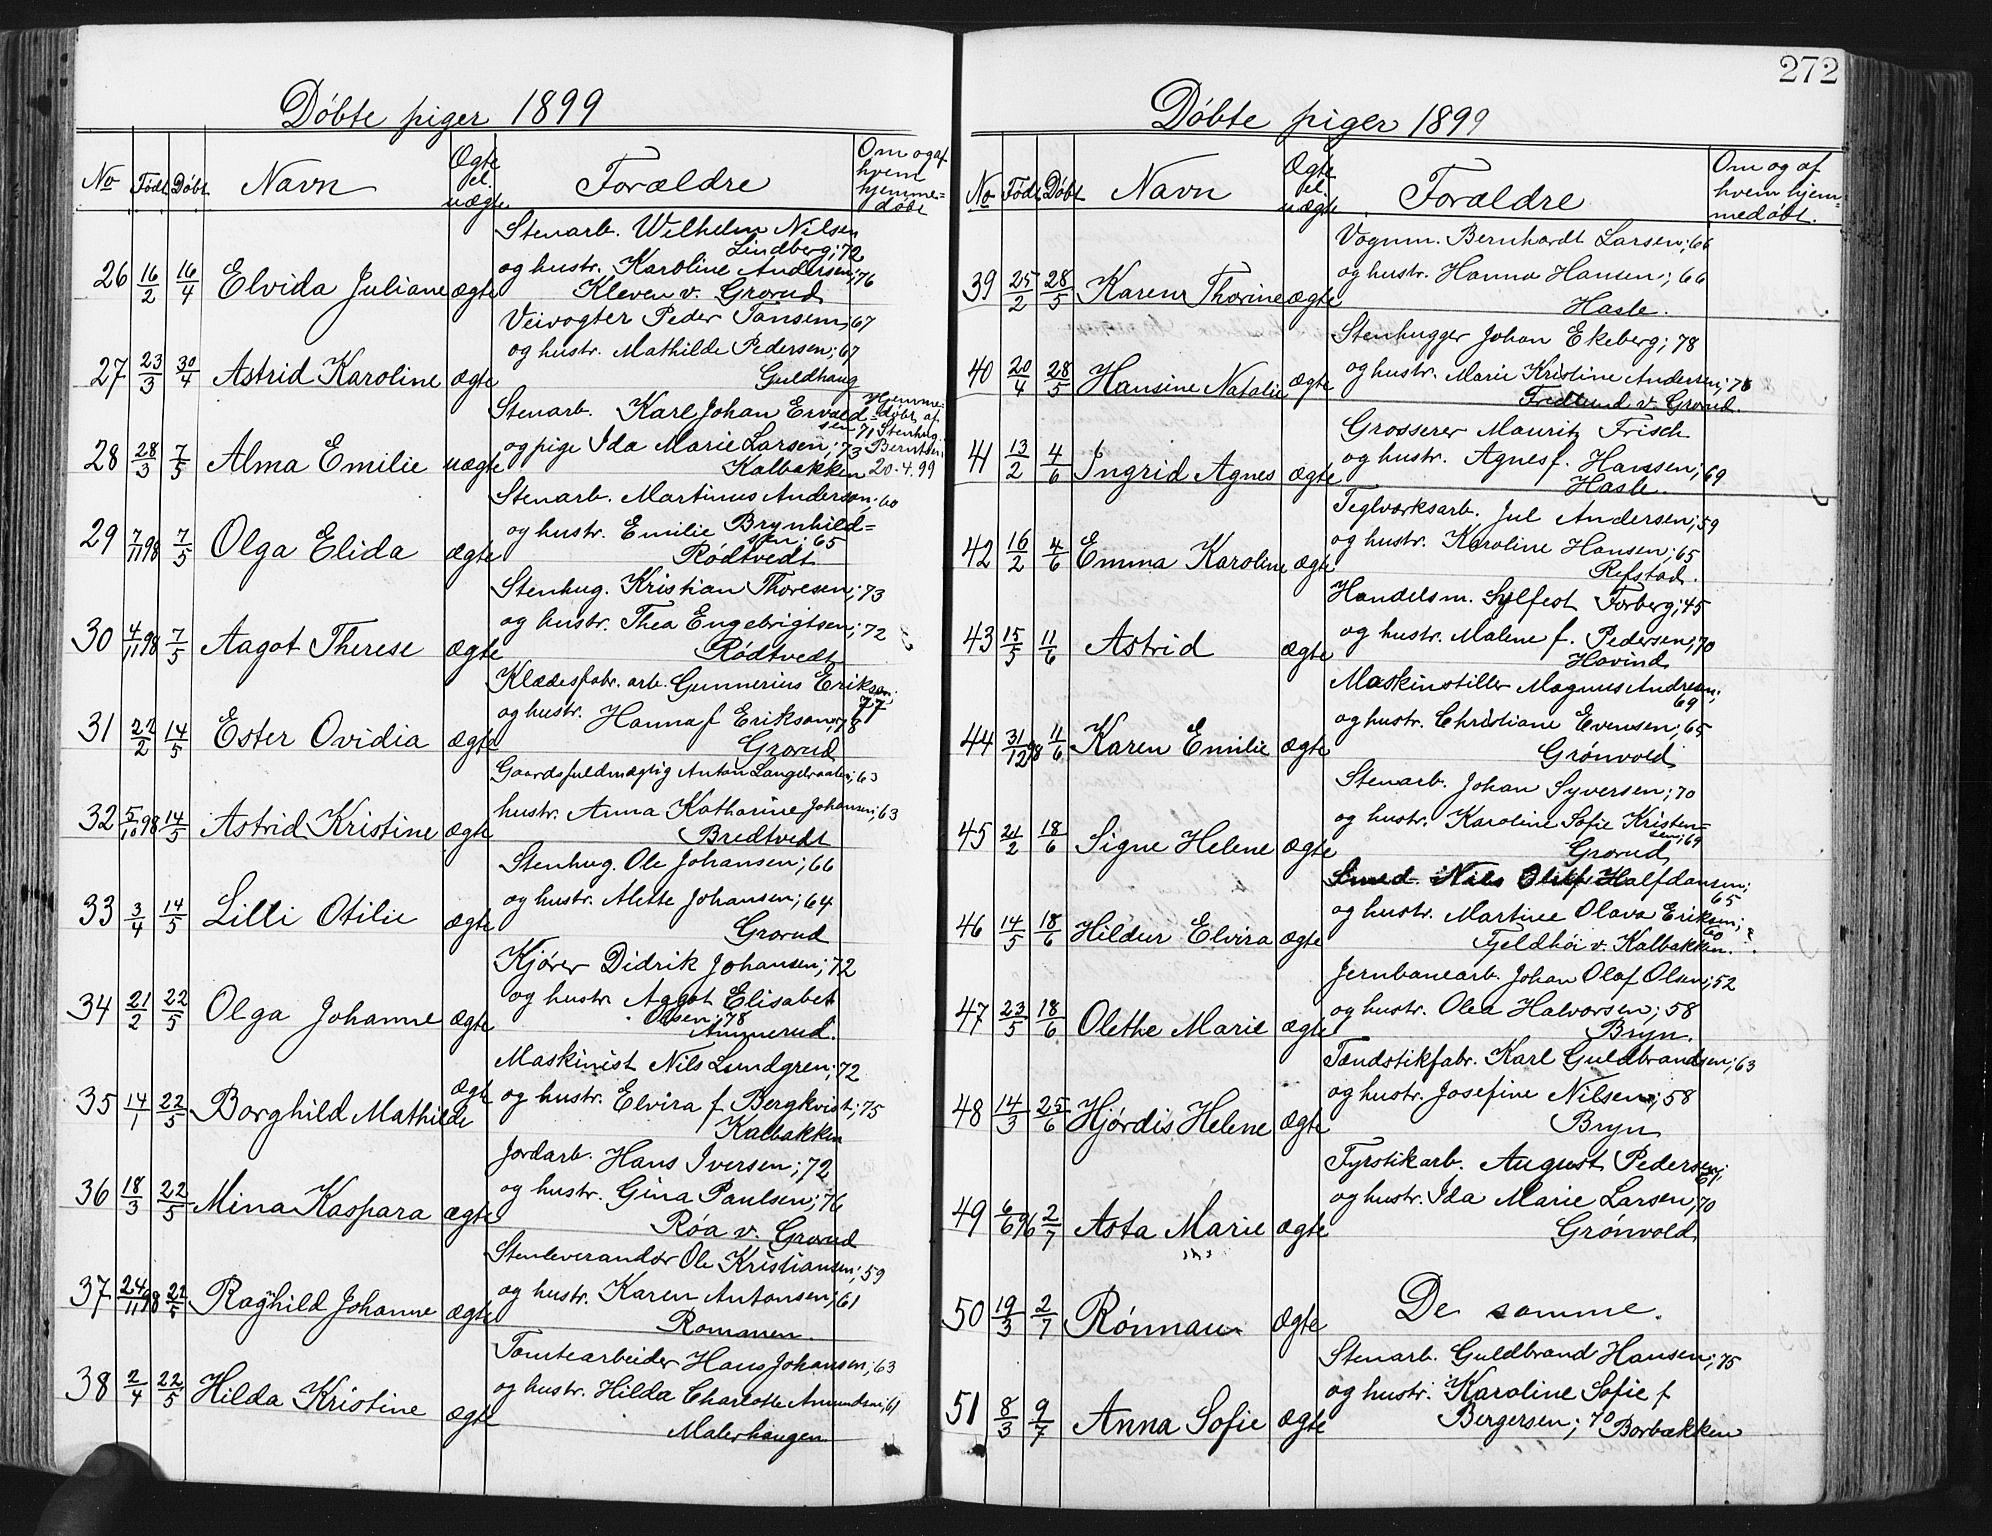 Döbte piger 1899
No Född Döbt Navn Ægte el. uægte Forældre Om og af hvem hjemme=döbt
Stenarb. Wilhelm Nilsen
Lindberg; 72
26 16/2 16/4 Elvida Juliane ægte og hustr. Karoline Andersen; 76
Kleven v. Grorud
Veivogter Peder Jansen; 67
og hustr. Mathilde Pedersen; 67
27 23/3 30/4 Astrid Karoline ægte Guldhaug
Stenarb. Karl Johan Ervald= Hjemme=döbt af
sen 71 Stenhug.
28 28/3 7/5 Alma Emilie uægte og pige Ida Marie Larsen; 73 Berntsen
Kalbakken 20.4.99
Stenarb. Martinus Anderson; 60
29 7/11 98 7/5 Olga Elida ægte og hustr. Emilie Brynhild=
sen; 65
Rödtvedt
Stenhug. Kristian Thoresen; 73
30 4/11 98 7/5 Aagot Therese ægte og hustr. Thea Engebrigtsen; 72
Rödtvedt
Klædesfabr. arb. Gunnerius Erikson;
77
31 22/2 14/5 Ester Ovidia ægte og hustr. Hanna f Erikson; 78
Grorud
Gaardsfuldmægtig Anton Langebraaten; 63
32 5/10 98 14/5 Astrid Kristine ægte hustr. Anna Katharine Johansen; 63
Bredtvedt
Stenhug. Ole Johansen; 66
33 3/4 14/5 Lilli Otilie ægte og hustr. Alette Johansen; 64
Grorud
Kjörer Didrik Johansen; 72
34 21/2 22/5 Olga Johanne ægte og hustr Aagot Elisabet
Olsen; 78
Ammerud.
Maskinist Nils Lundgren; 72
35 14/1 22/5 Borghild Mathilde ægte og hustr. Elvira f Bergkvist; 75
Kalbakken
Jordarb. Hans Iversen; 72
36 18/3 22/5 Mina Kaspara ægte og hustr. Gina Paulsen; 76
Röa v. Grorud
Stenleverandör Ole Kristiansen; 59
37 24/11 98 22/5 Raghild Johanne ægte og hustr. Karen Antonsen; 61
Rommen.
Tomtearbeider Hans Johansen; 63
38 2/4 22/5 Hilda Kristine ægte og hustr. Hilda Charlotte Amundsen; 61
Malerhaugen
272
Döbte piger 1899
No Född Döbt Navn Ægte el. uægte Forældre Om og af hvem hjem=medöbt.
Vognm. Bernhardt Larsen; 66
39 25/2 28/5 Karen Thorine ægte og hustr. Hanna Hansen; 66
Hasle.
Stenhugger Johan Ekeberg; 78
40 20/4 28/5 Hansine Natalie ægte og hustr. Marie Kristine Andersen; 76
Fredlund v. Grorud.
Grosserer Mauritz Frisch
41 13/2 4/6 Ingrid Agnes ægte og hustr. Agnes f. Hanssen; 69
Hasle.
Teglværksarb. Jul Andersen; 59
42 16/2 4/6 Emma Karoline ægte og hustr. Karoline Hansen; 65
Refstad.
Handelsm. Sylfest Forberg; 45
43 15/5 11/6 Astrid ægte og hustr. Malene f. Pedersen; 70
Hovind
Maskinstiller Magnus Andresen;
69
44 31/12 98 11/6 Karen Emilie ægte og hustr. Christiane Evensen; 65
Grönvold
Stenarb. Johan Syversen; 70
45 21/2 18/6 Signe Helene ægte og hustr. Karoline Sofie Kristen=
sen; 69
Grorud
Smed. Nils Oluf Halfdansen;
65
46 14/5 18/6 Hildur Elvira ægte og hustr. Martine Olava Eriksen;
60
Fjeldhöi v. Kalbakken.
Jernbanearb. Johan Olaf Olsen; 52
47 23/5 18/6 Olethe Marie ægte og hustr. Olea Halvorsen; 58
Bryn.
Tændstikfabr. Karl Guldbrandsen; 63
48 14/3 25/6 Hjördis Helene ægte og hustr. Josefine Nilsen; 58
Bryn
Fyrstikarb. August Pedersen;
49 6/6 96 2/7 Asta Marie ægte og hustr. Ida Marie Larsen; 70
Grönvold
50 19/3 2/7 Rönnau ægte De samme.
Stenarb. Guldbrand Hansen; 75
51 8/3 9/7 Anna Sofie ægte og hustr. Karoline Sofie f
Bergersen; 70 Borbækken